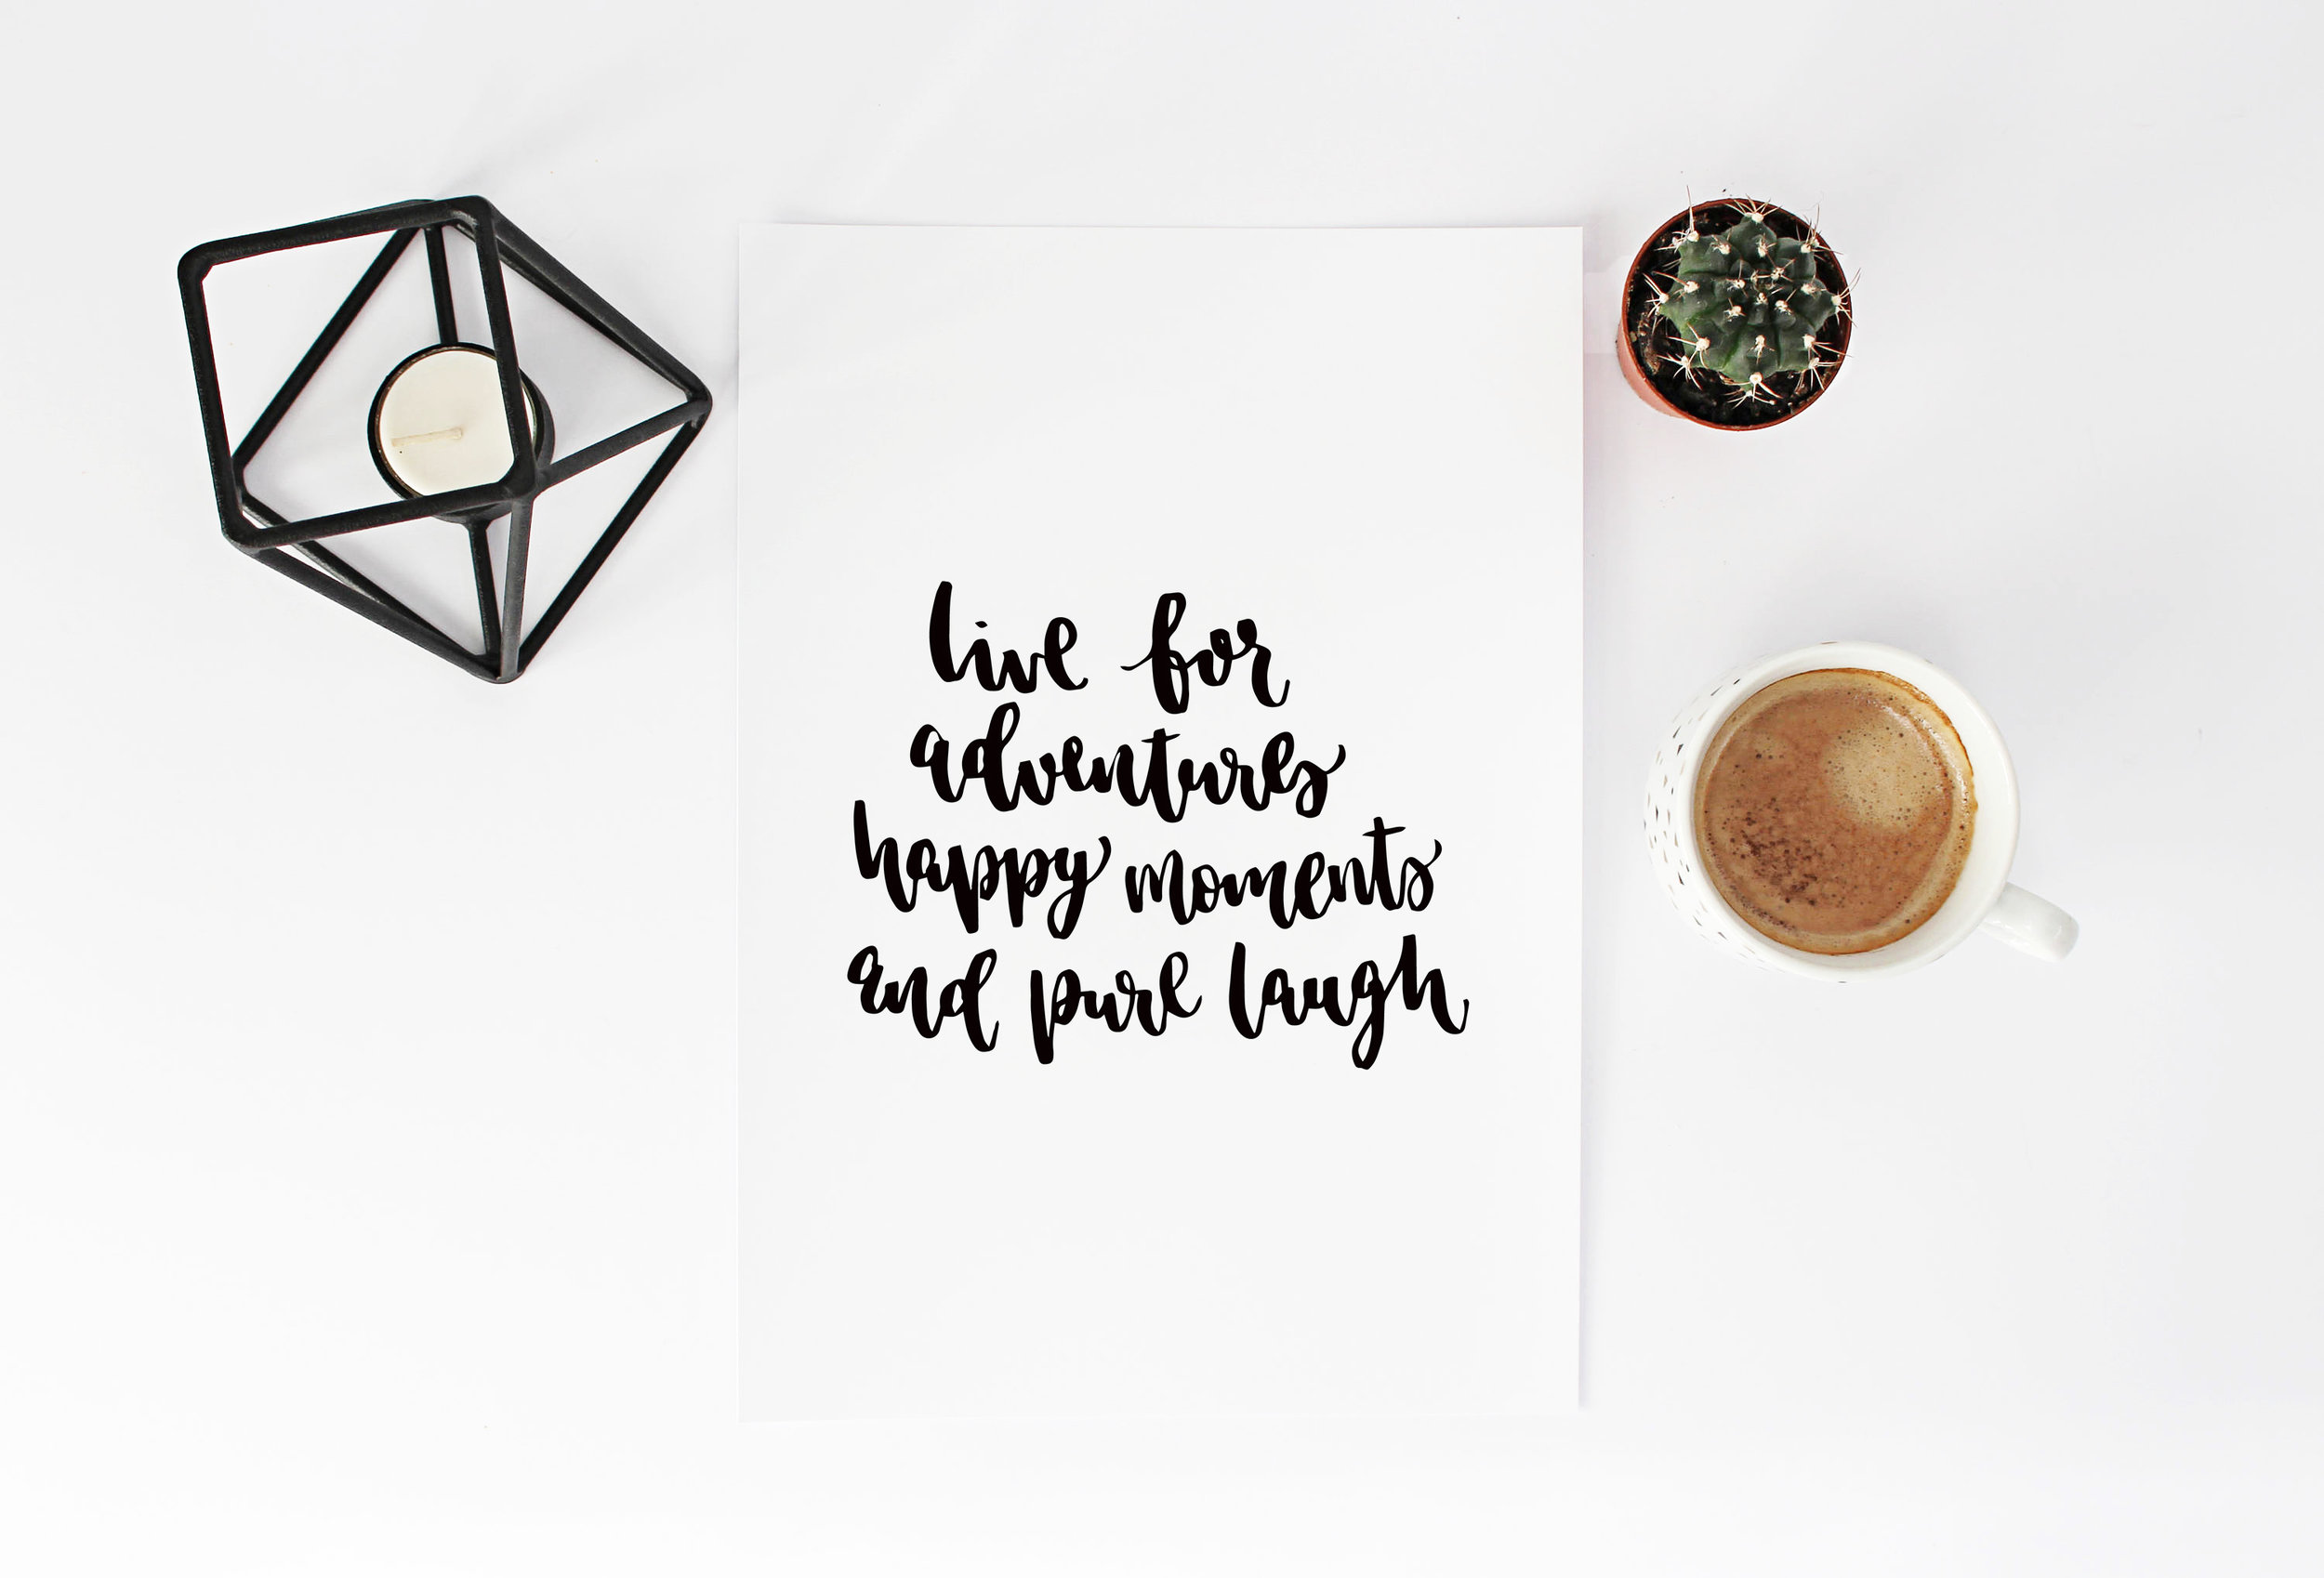 live for
adventures
happy moments
and pure laugh